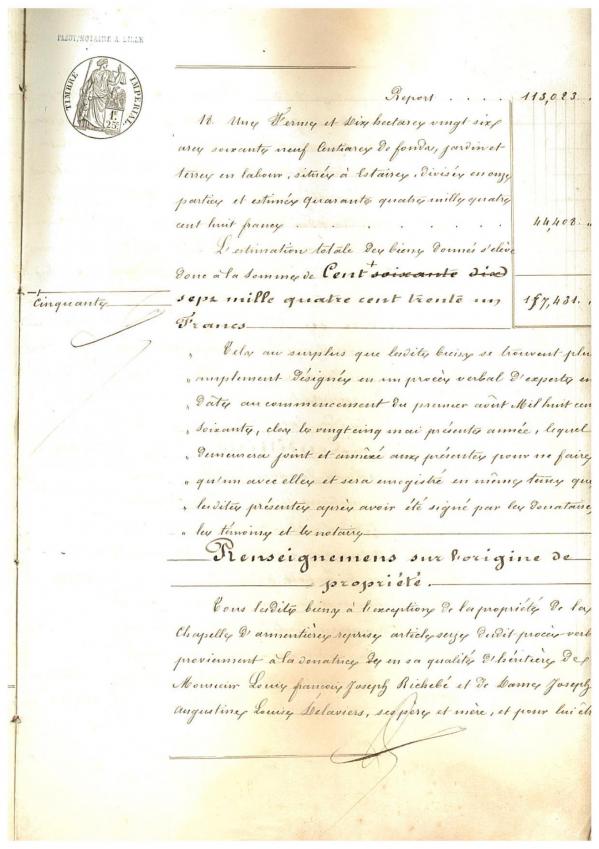 PAJOT, NOTAIRE A LILLE
TIMBRE IMPÉRIAL
1F
25c
Report . . . . 113,023 .
18. Une Ferme et Dix hectares vingt six
ares soixante neuf Centiares de fonds, jardin et
terres en labour, située à Estaires, divisée en onze
parties et estimée quarante quatre mille quatre
cent huit francs . . . . . . . . . . 44,408 . "
L'estimation totale des biens donnés s'élève
donc à la Somme de Cent + soixante dix
Cinquante
sept mille quatre cent trente un 157,431 . "
Francs
" Tels au surplus que lesdits biens se trouvent plus
" amplement désignés en un procès verbal d'experts en
" date au commencement du premier août Mil huit cen
" soixante, clos le vingt cinq mai présente année, lequel
" demeurera joint et annexé aux présentes pour ne faire
" qu'un avec elles et sera enregistré en même tems que
" lesdites présentes après avoir été signé par les donataires,
" les témoins et les notaires
Renseignemens sur l'origine de
propriété.
Tous lesdits biens à l'exception de la propriété de la
Chapelle d'armentières reprise article seize dudit procès verb
proviennent à la donatrice de en sa qualité d'héritière de
Monsieur Louis françois Joseph Richebé et de Dame Joseph
Augustine Louise Delaviers, ses père et mère, et pour lui êt